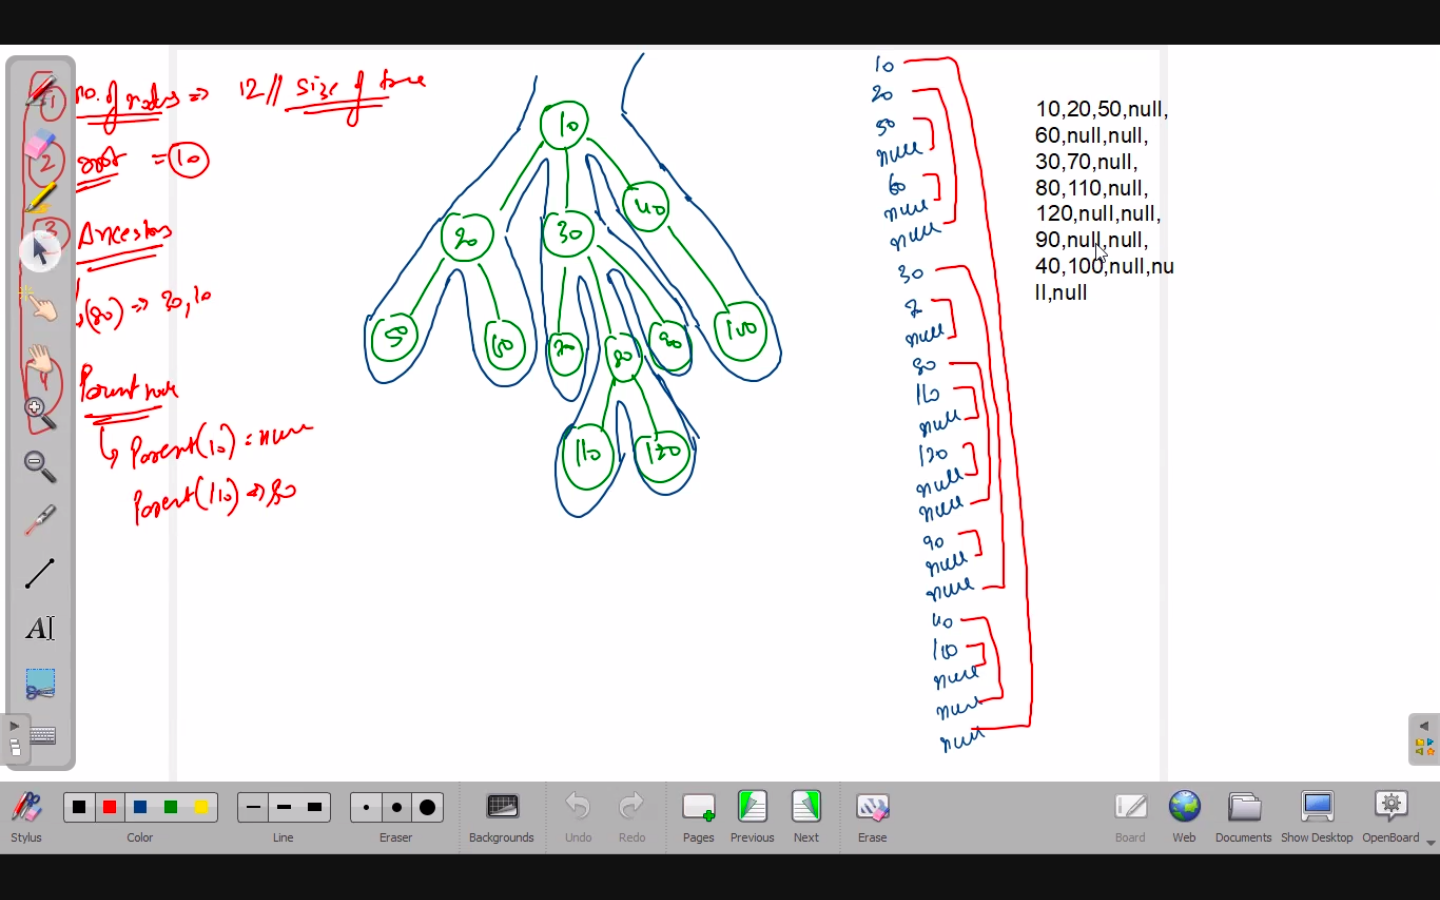 1 no. of nodes => 12 // size of tree
2 root = 10
3 Ancestors
(80) => 30, 10
4 Parent node
Parent(10) = null
Parent(110) => 80
10
20
30
40
50
60
70
80
90
100
110
120
10
20
50
null
60
null
null
30
70
null
80
110
null
120
null
null
90
null
null
40
100
null
null
null
10,20,50,null,
60,null,null,
30,70,null,
80,110,null,
120,null,null,
90,null,null,
40,100,null,nu
ll,null
A
Stylus
Color
Line
Eraser
Backgrounds
Undo
Redo
Pages
Previous
Next
Erase
Board
Web
Documents
Show Desktop
OpenBoard